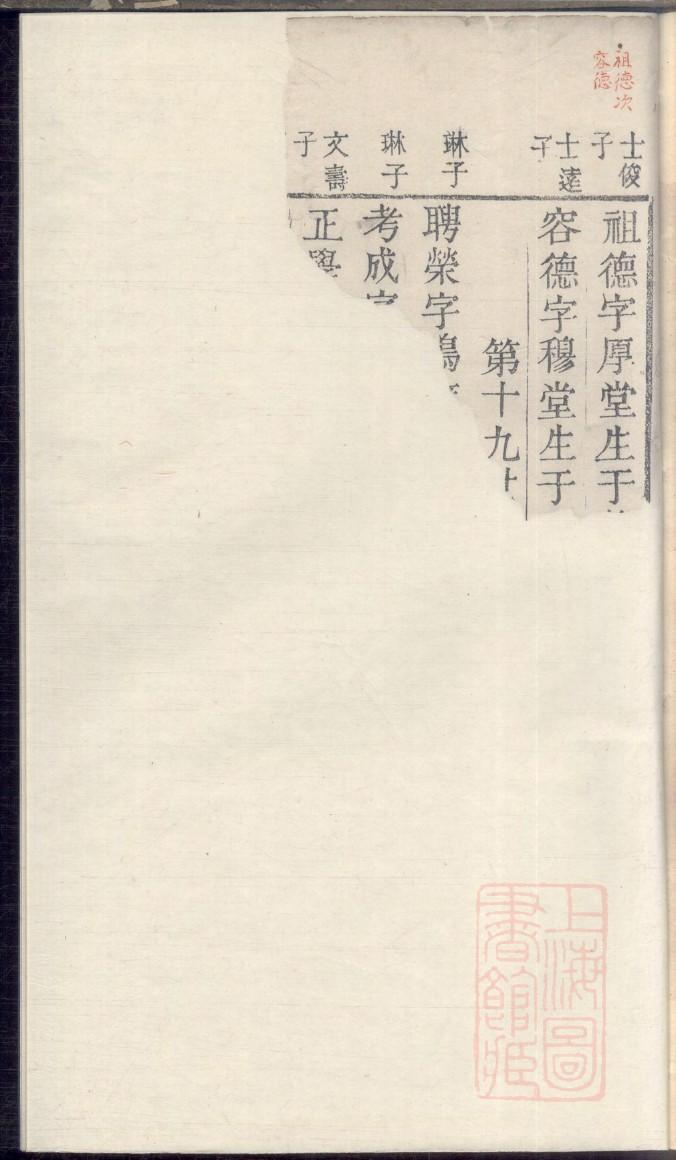 祖德次
容德
士俊子
祖德字厚堂生于
士逵子
容德字穆堂生于
第十九
琳子
聘榮字鳴
琳子
考成字
文壽子
正
上海圖書館藏